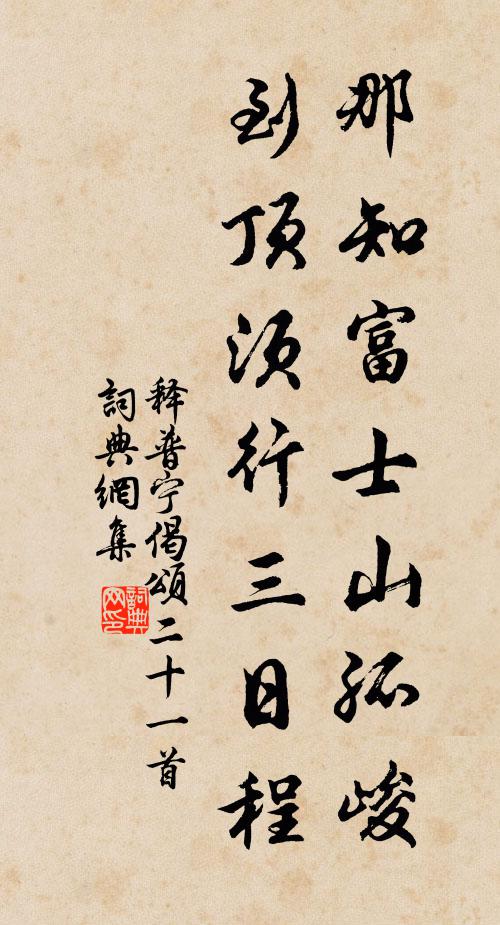 那知富士山孤峻
到顶须行三日程
释普宁偈頌二十一首
詞典網集
詞典
网印